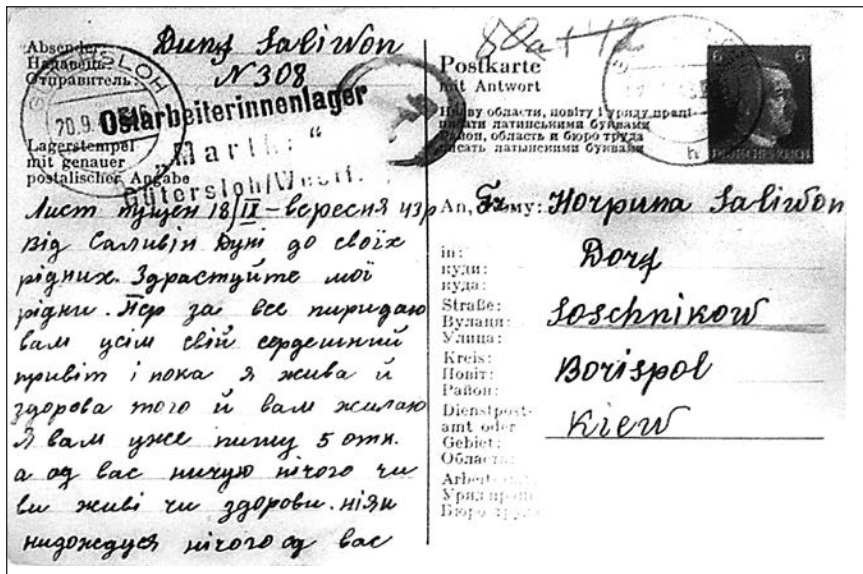 Absender:
Надавець:
Отправитель:
Dunj Saliwon
N 308
LOH
20.9.
Ostarbeiterinnenlager
Lagerstempel
mit genauer
postalischer Angabe
Gütersloh/Westf.
Лист пущен 18/IX - вересня 43р
Від Саливін Дуні до своїх
рідних. Здрастуйте мої
рідни. Пер за все пиридаю
вам усім свій сердешний
привіт і пока я жива й
здорова того й вам жилаю
Я вам уже пишу 5 отк.
а од вас ничую нічого чи
ви живі чи здорови. ніяк
нидождуся нічого од вас
Postkarte
mit Antwort
Назву області, повіту і уряду праці
писати латинськими буквами
Район, область и бюро труда
писать латынскими буквами
6 6
DEUTSCHES REICH
An, Кому: Horpuna Saliwon
in:
куди:
куда:
Dorf
Straße:
Вулиця:
Улица:
Soschnikow
Kreis:
Повіт:
Район:
Borispol
Dienstpost-
amt oder
Gebiet:
Область:
Kiew
Уряд праці
Бюро труда